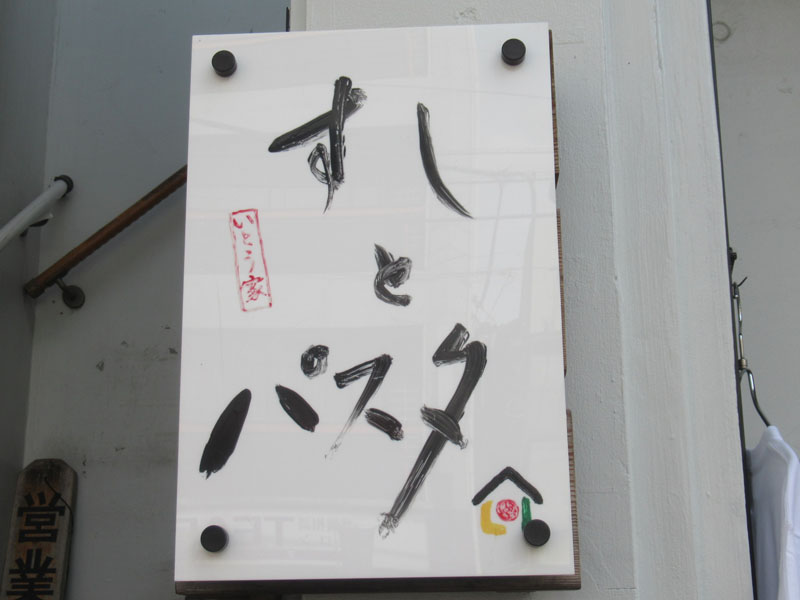 すし
と
パスタ
いとう家
営業